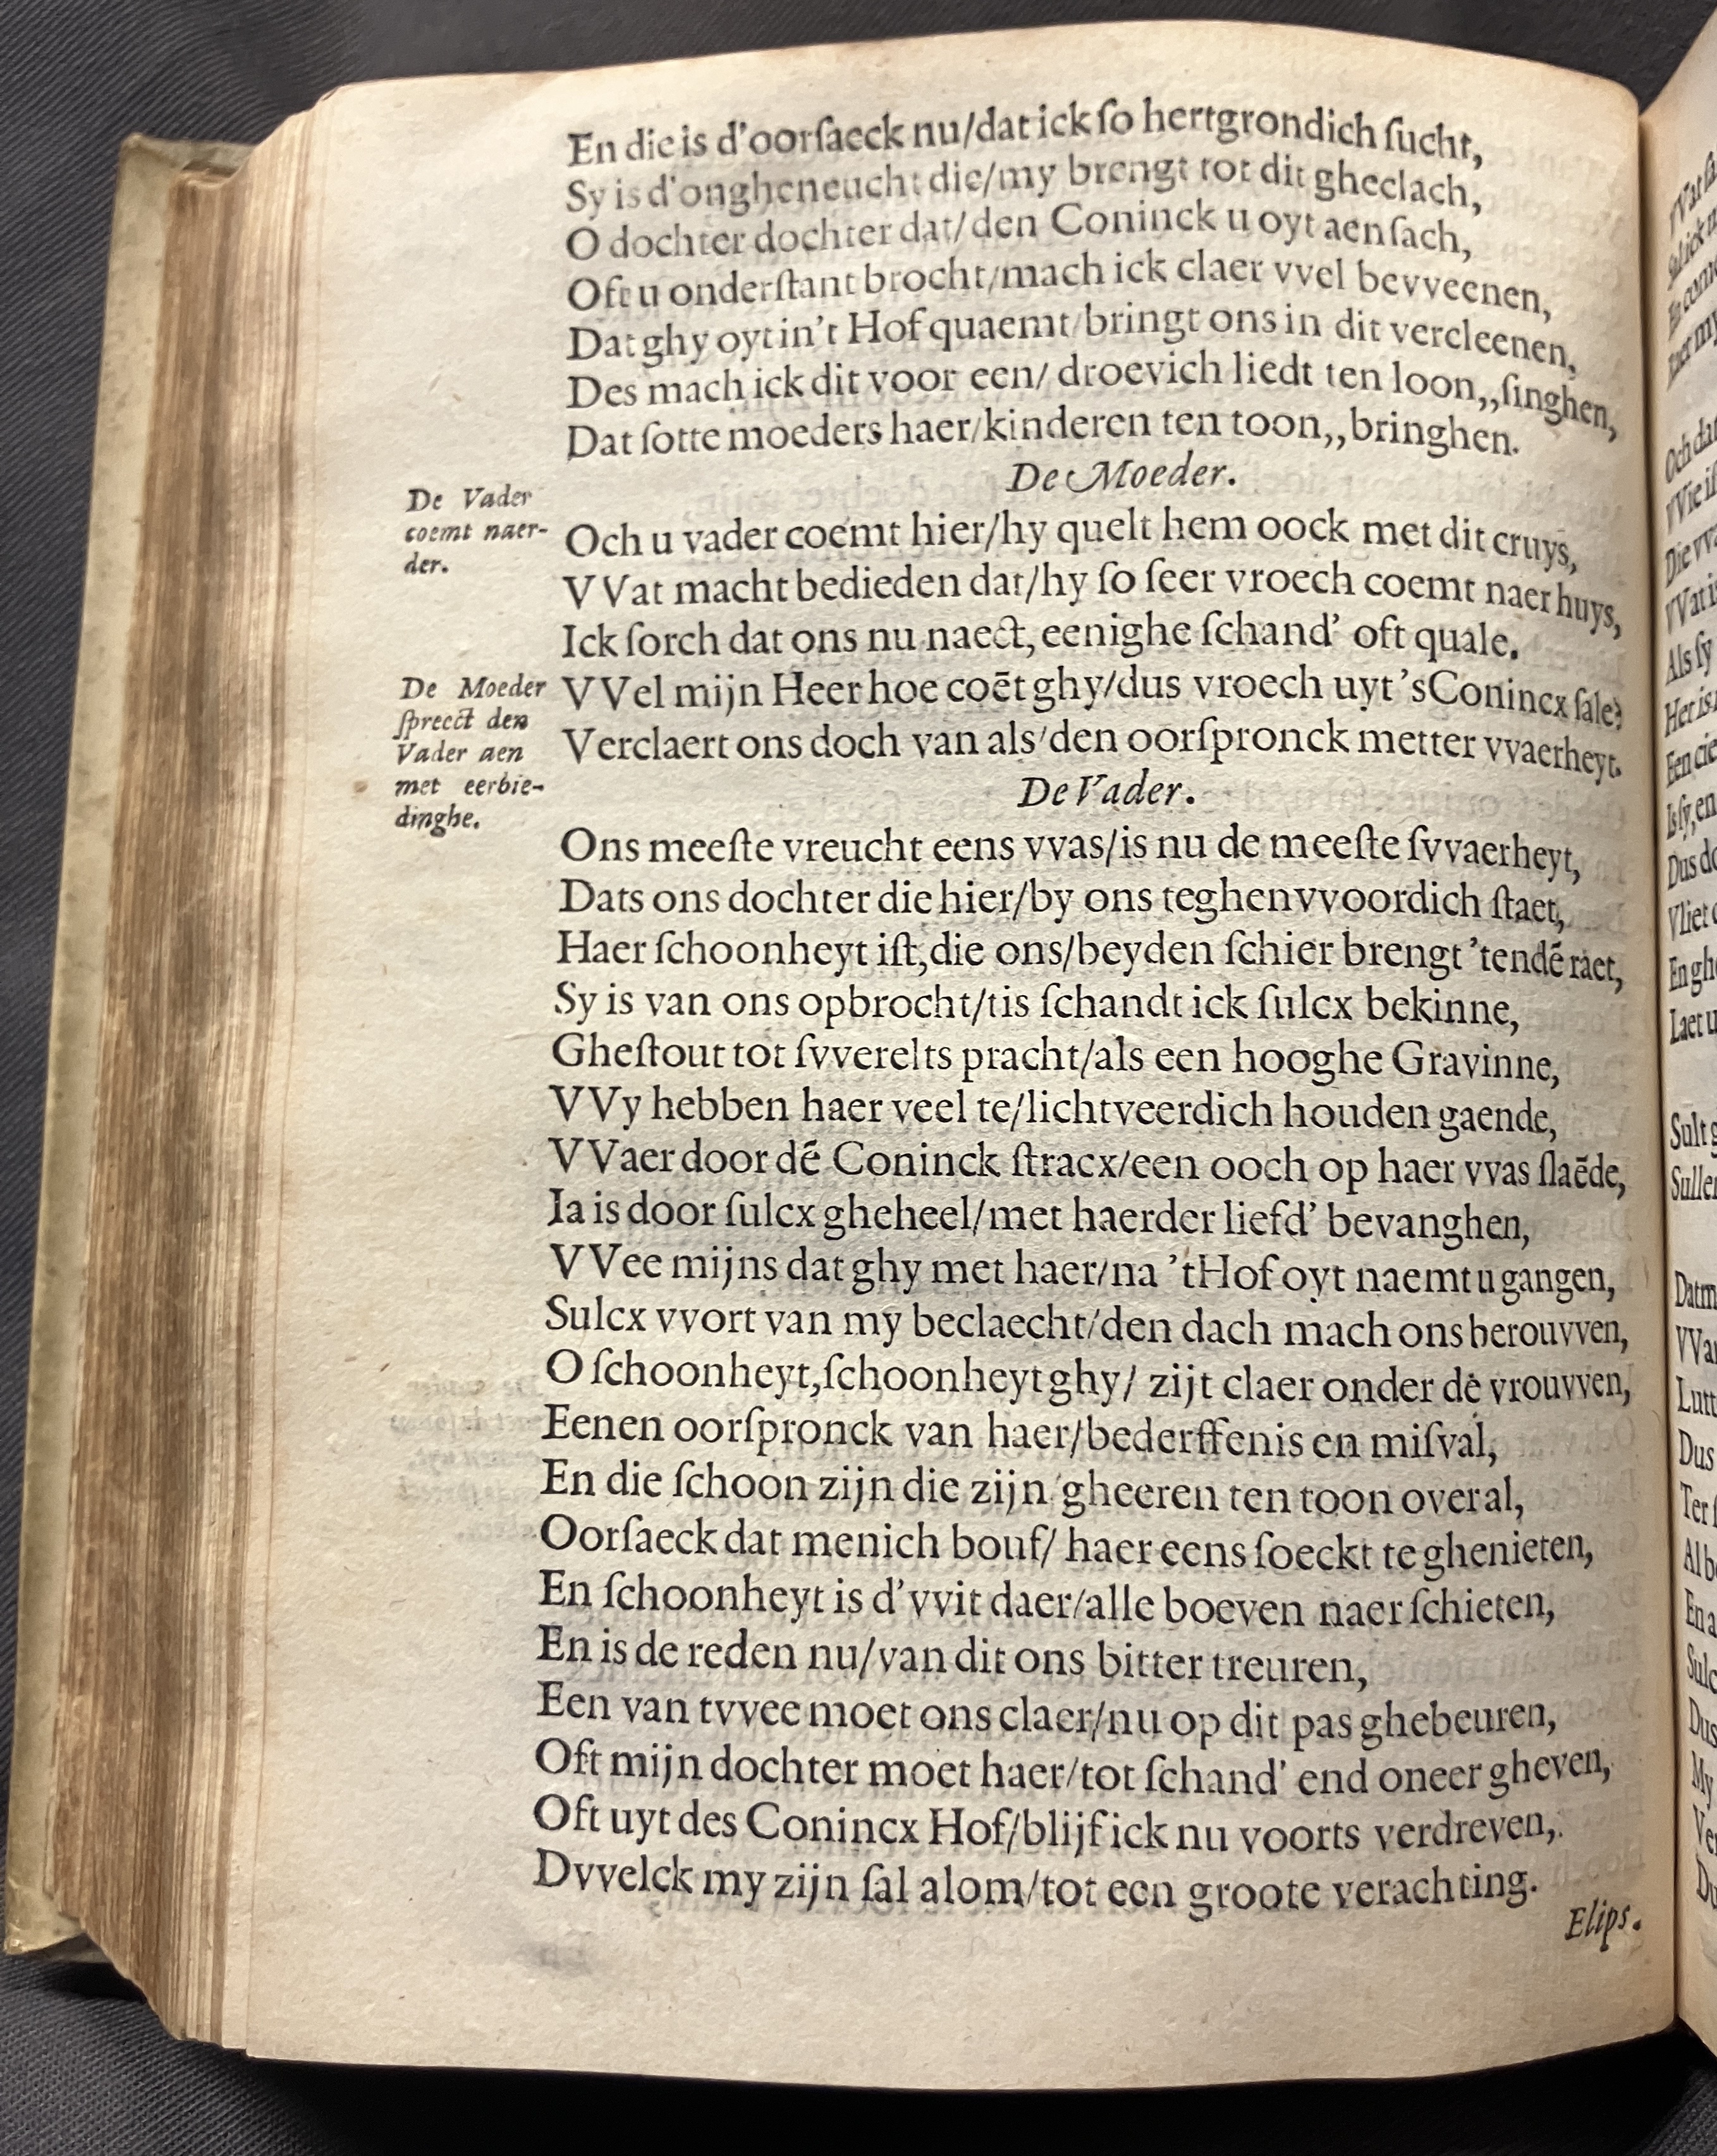 En die is d'oorſaeck nu/dat ick ſo hertgrondich ſucht,
Sy is d'ongheneucht die/my brengt tot dit gheclach,
O dochter dochter dat/den Coninck u oyt aenſach,
Oft u onderſtant brocht/mach ick claer vvel bevveenen,
Dat ghy oyt in't Hof quaemt/bringt ons in dit vercleenen,
Des mach ick dit voor een/droevich liedt ten loon,,ſinghen,
Dat ſotte moeders haer/kinderen ten toon,,bringhen.
De Moeder.
De Vader
coemt naer-
der.
Och u vader coemt hier/hy quelt hem oock met dit cruys,
VVat macht bedieden dat/hy ſo ſeer vroech coemt naer huys,
Ick ſorch dat ons nu naect, eenighe ſchand' oft quale.
De Moeder
ſpreect den
Vader aen
met eerbie-
dinghe.
VVel mijn Heer hoe coēt ghy/dus vroech uyt 'sConincx ſale?
Verclaert ons doch van als/den oorſpronck metter vvaerheyt.
De Vader.
Ons meeſte vreucht eens vvas/is nu de meeſte ſvvaerheyt,
Dats ons dochter die hier/by ons teghenvvoordich ſtaet,
Haer ſchoonheyt iſt,die ons/beyden ſchier brengt 'tendē raet,
Sy is van ons opbrocht/tis ſchandt ick ſulcx bekinne,
Gheſtout tot ſvverelts pracht/als een hooghe Gravinne,
VVy hebben haer veel te/lichtveerdich houden gaende,
VVaer door dē Coninck ſtracx/een ooch op haer vvas ſlaēde,
Ia is door ſulcx gheheel/met haerder liefd' bevanghen,
VVee mijns dat ghy met haer/na 'tHof oyt naemt u gangen,
Sulcx vvort van my beclaecht/den dach mach ons berouvven,
O ſchoonheyt,ſchoonheyt ghy/ zijt claer onder dē vrouvven,
Eenen oorſpronck van haer/bederffenis en miſval,
En die ſchoon zijn die zijn/gheeren ten toon overal,
Oorſaeck dat menich bouf/ haer eens ſoeckt te ghenieten,
En ſchoonheyt is d'vvit daer/alle boeven naer ſchieten,
En is de reden nu/van dit ons bitter treuren,
Een van tvvee moet ons claer/nu op dit pas ghebeuren,
Oft mijn dochter moet haer/tot ſchand' end oneer gheven,
Oft uyt des Conincx Hof/blijf ick nu voorts verdreven,
Dvvelck my zijn ſal alom/tot een groote verachting.
Elips.